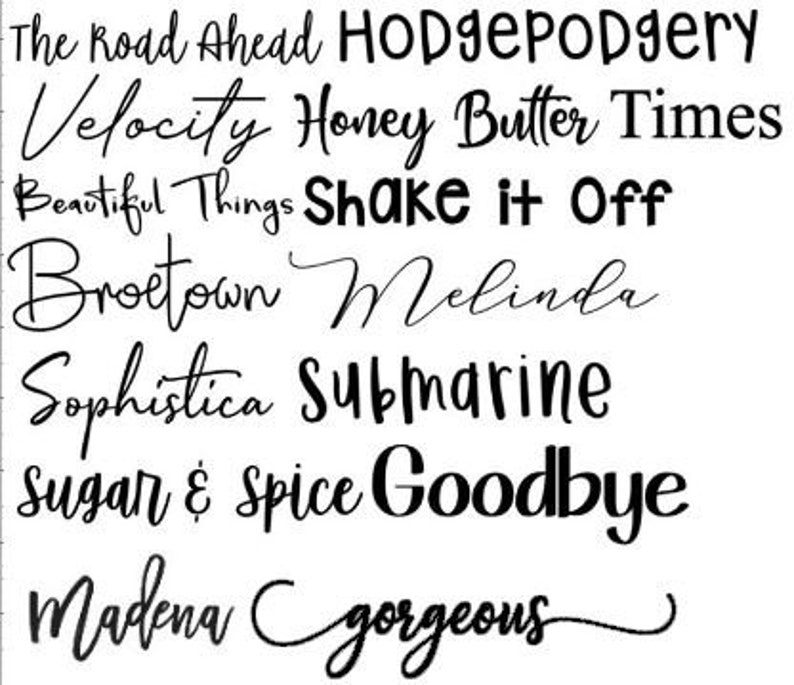 The Road Ahead HoDgePoDgeRY
Velocity Honey Butter Times
Beautiful Things Shake it Off
Broetown Melinda
Sophistica Submarine
Sugar & Spice Goodbye
Madena gorgeous